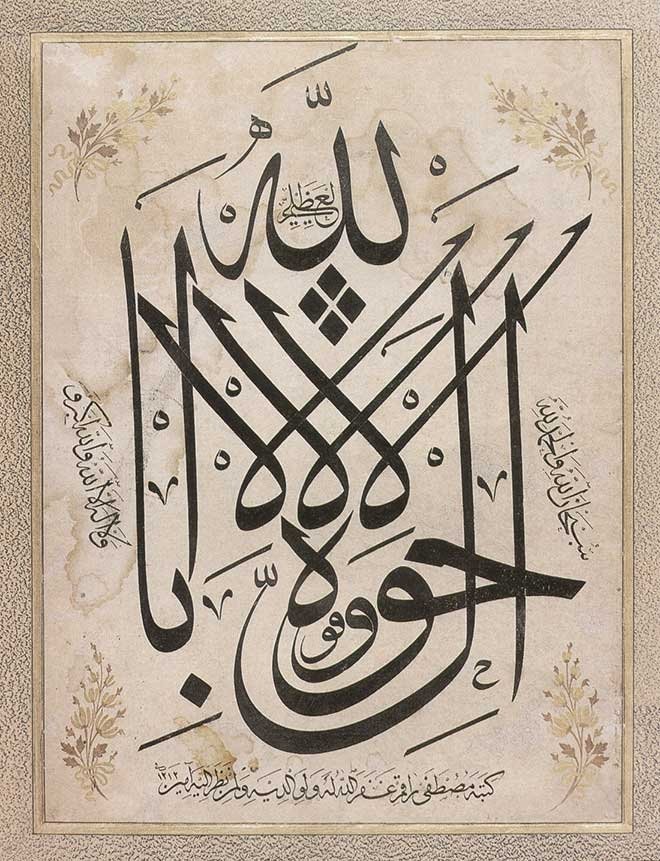 سبحان الله والحمد لله
ولا اله الا الله والله اكبر و
لا حول ولا قوة الا بالله العلي العظيم
كتبه مصطفى راقم غفر الله له ولوالديه ولمن نظر اليه آمين ١٢١٢